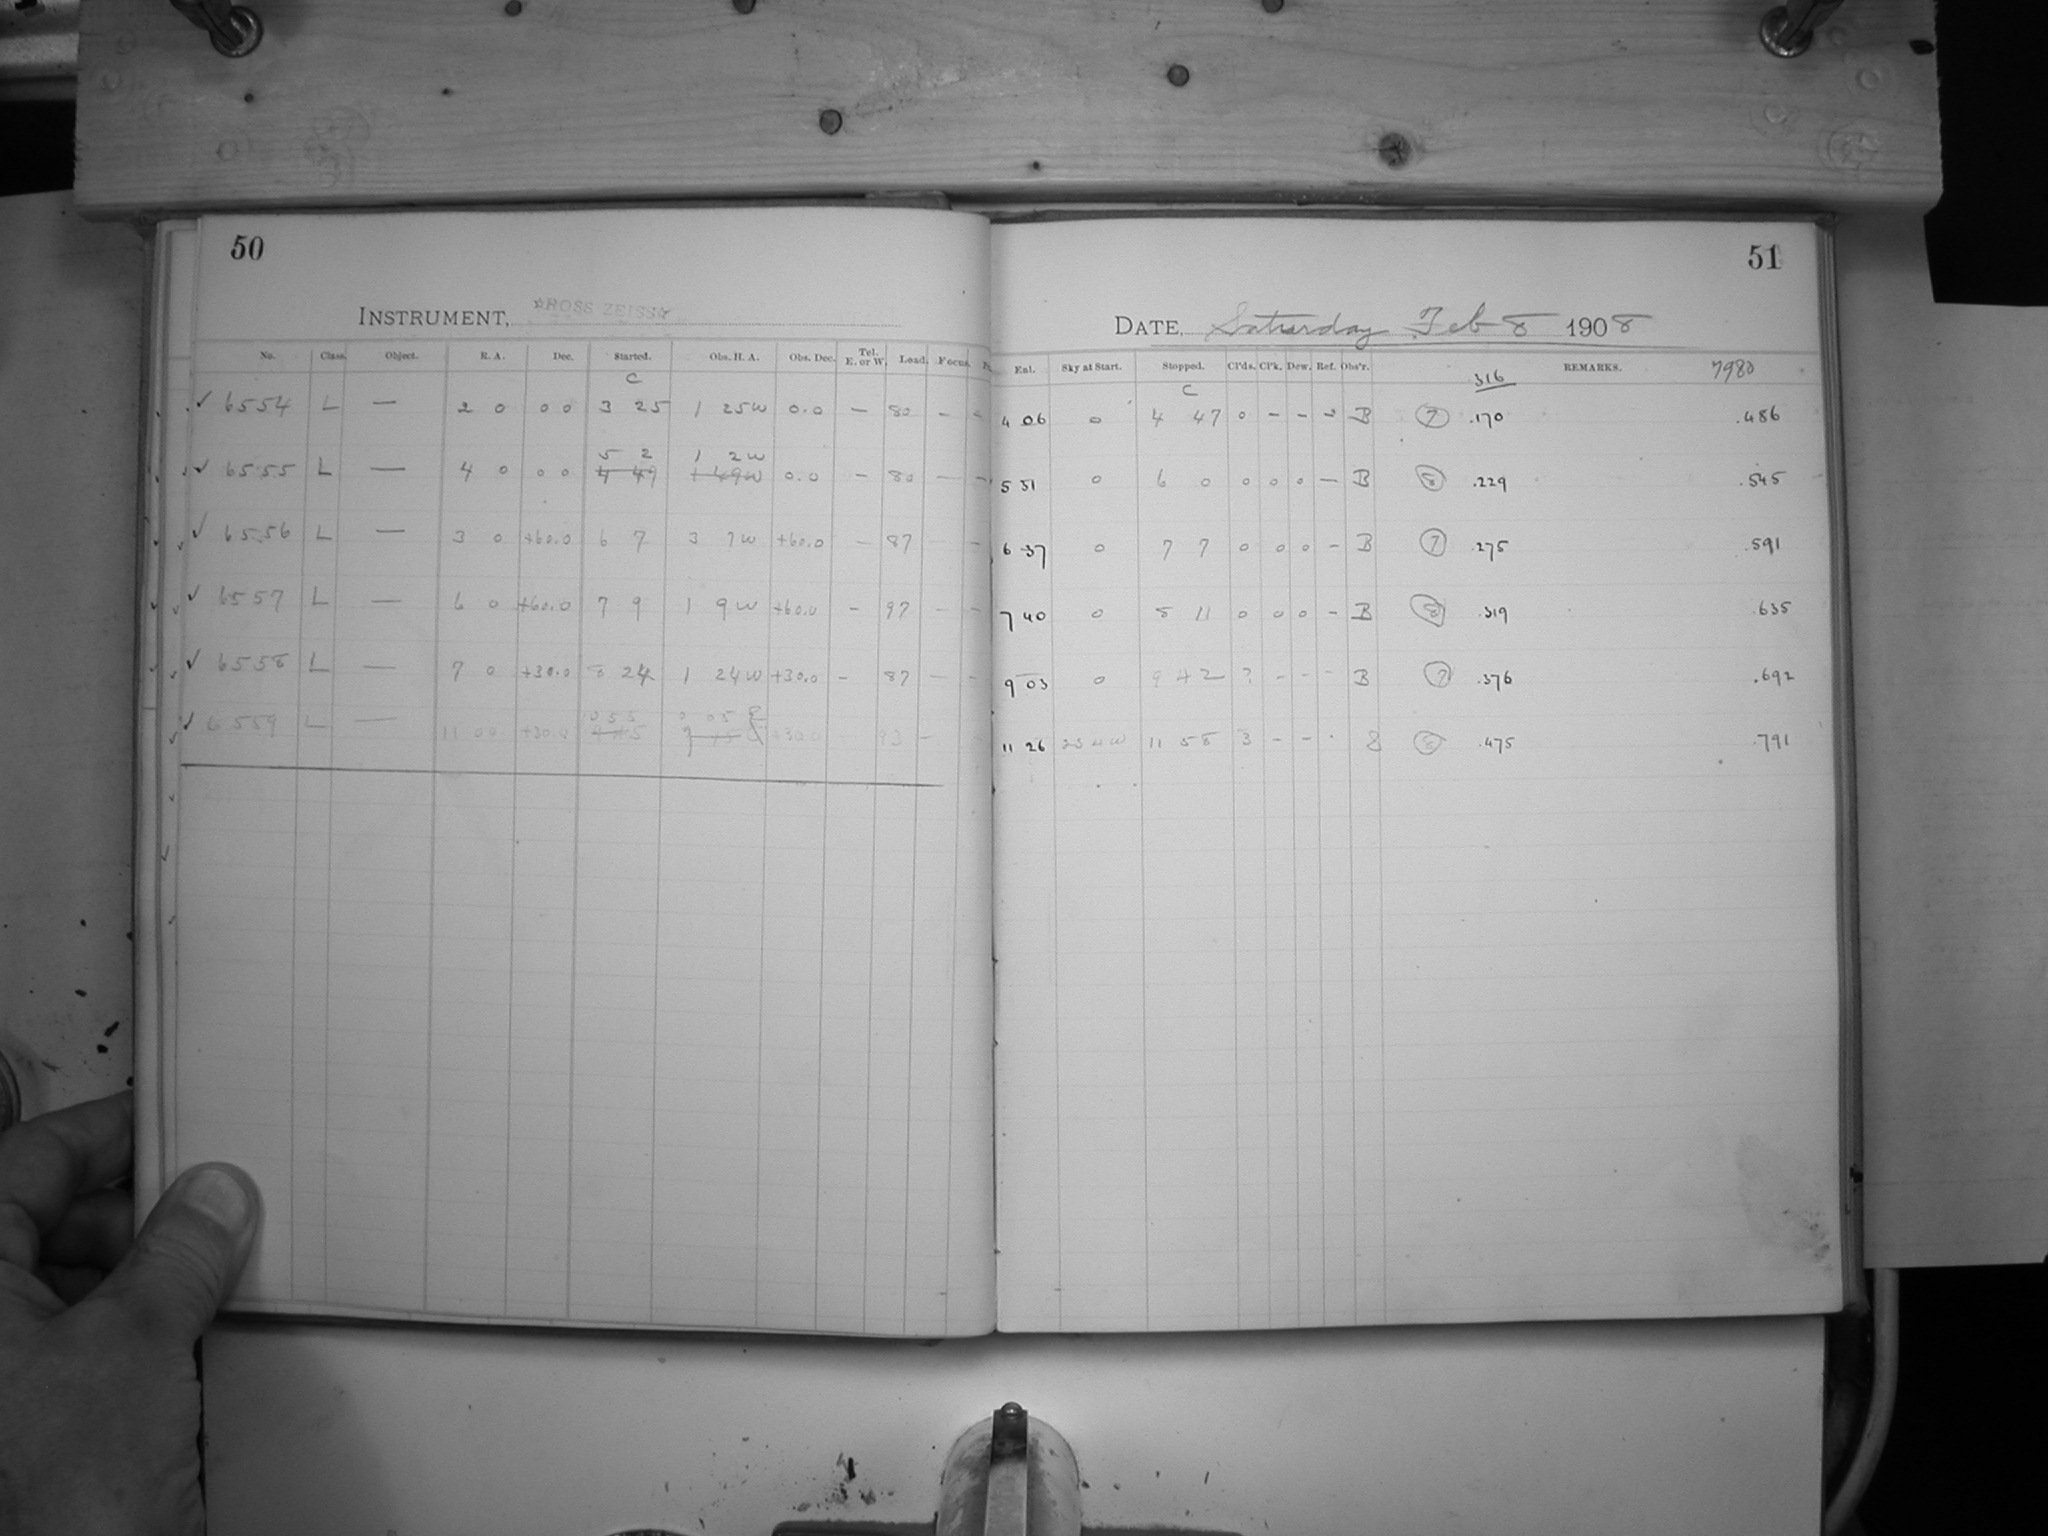 50
INSTRUMENT, ☆ROSS ZEISS☆
No. Class. Object. R. A. Dec. Started. Obs. H. A. Obs. Dec. Tel. E. or W. Load. Focus.
C
✓ 6554 L — 2 0 0 0 3 25 1 25W 0.0 — 80 - -
5 2 1 2W
✓ 6555 L — 4 0 0 0 4 49 1 49W 0.0 — 80 — —
✓ 6556 L — 3 0 +60.0 6 7 3 7W +60.0 — 87 - -
✓ 6557 L — 6 0 +60.0 7 9 1 9W +60.0 - 97 - -
✓ 6558 L — 7 0 +30.0 8 24 1 24W +30.0 - 87 - -
0 55 0 05
✓ 6559 L — 11 00 +30.0 93 -
51
DATE, Saturday Feb 8 1908
Enl. Sky at Start. Stopped. Cl'ds. Cl'k. Dew. Ref. Obs'r. REMARKS. 7980
316
C
4 06 0 4 47 0 - - - B 7 .170 .486
5 51 0 6 0 0 0 0 — B 8 .229 .545
6 37 0 7 7 0 0 0 - B 7 .275 .591
7 40 0 8 11 0 0 0 - B 8 .319 .635
9 03 0 9 42 ? - - - B 7 .376 .692
11 26 11 58 3 - - · .475 .791